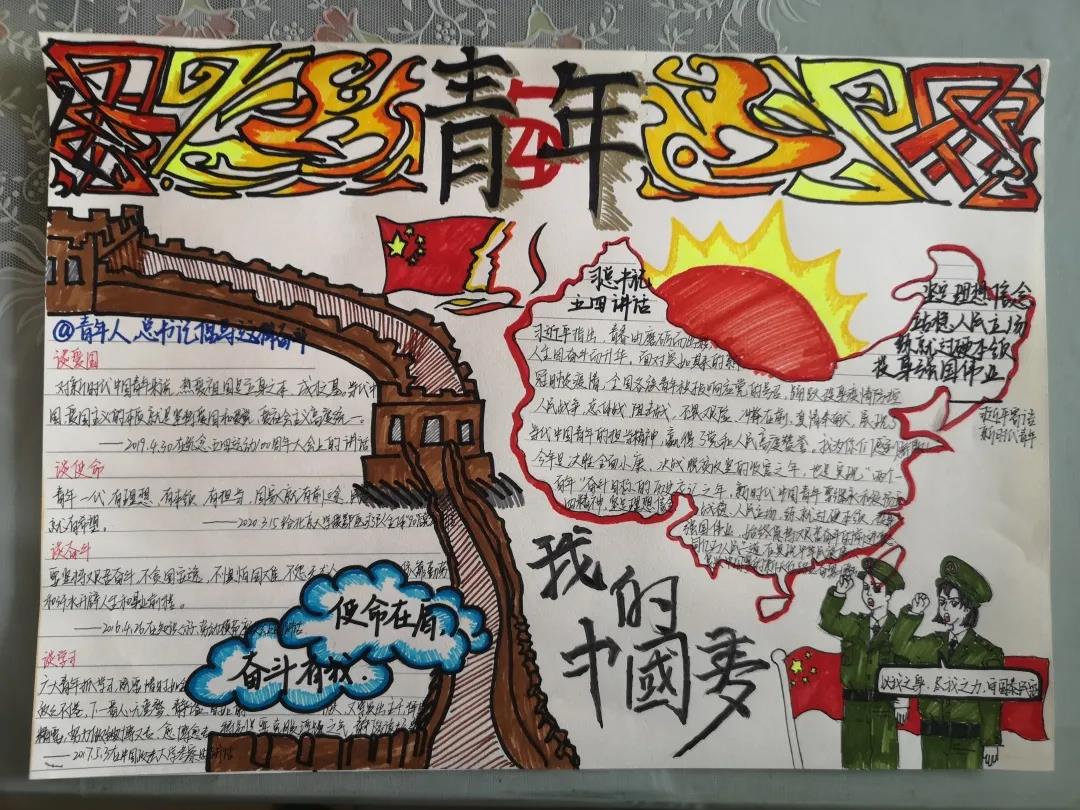 青年
54
@青年人,总书记倡导这样奋斗
谈爱国
对新时代中国青年来说,热爱祖国是立身之本、成才之基。当代中
国,爱国主义的本质就是坚持爱国和爱党、爱社会主义高度统一。
——2019.4.30在纪念五四运动100周年大会上的讲话
谈使命
青年一代有理想、有本领、有担当,国家就有前途,民
就有希望。
——2020.3.15给北京大学援鄂医疗队全体"90后
谈奋斗
要坚持艰苦奋斗,不贪图安逸,不惧怕困难,不怨天尤人
和汗水开辟人生和事业前程。
——2016.4.26在知识分子、劳动模范
讲话
谈学习
广大青年抓学习,既要惜时如金
——2017.5.3在中国政法大学考察时讲话
使命在肩,
奋斗有我.
习总书记
五四讲话
习近平指出,青春由磨砺而出彩
人生因奋斗而升华。面对突如其来的新
冠肺炎疫情,全国各族青年积极响应党的号召,踊跃投身疫情防控
人民战争、总体战、阻击战,不畏艰险、冲锋在前、真情奉献,展现了
当代中国青年的担当精神,赢得了党和人民高度赞誉。我为你们感到骄傲!
今年是决胜全面小康、决战脱贫攻坚的收官之年,也是实现"两个
百年"奋斗目标的历史交汇之年。新时代中国青年要继承和发扬五
四精神,坚定理想信念
站稳人民立场,练就过硬本领,投身
强国伟业,始终保持艰苦奋斗的前进姿态,
坚定理想信念
站稳人民立场
练就过硬本领
投身强国伟业
习近平寄语
新时代青年
我的
中國夢
以我之身,尽我之力,百国泰民安